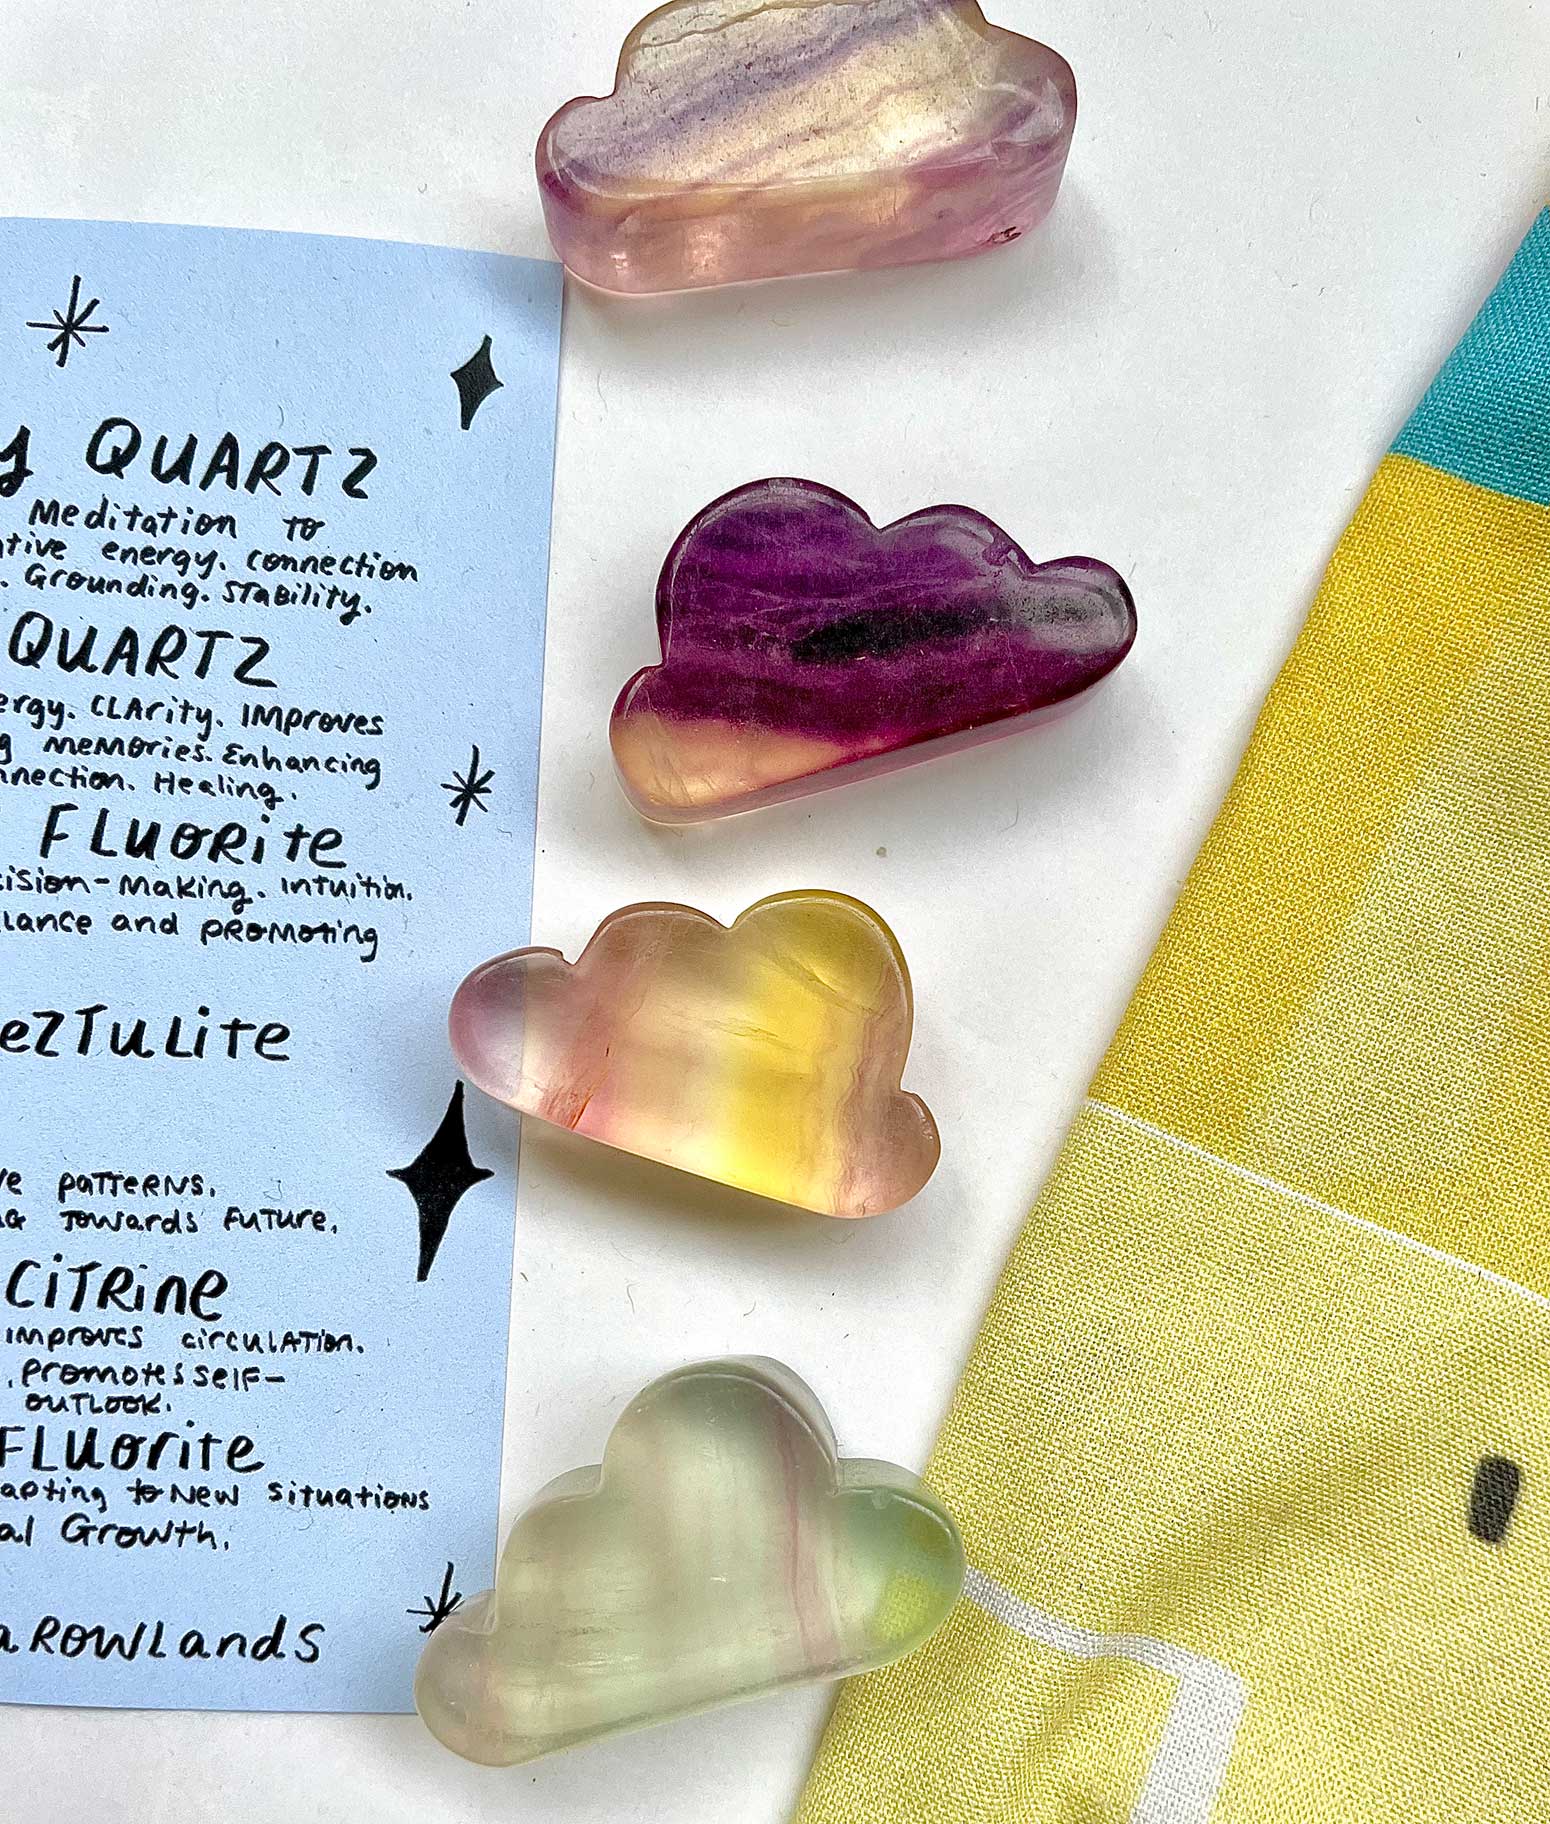 QUARTZ
Meditation to
energy. connection
Grounding. Stability.
QUARTZ
CLArity. IMProves
memories. Enhancing
Healing.
FLuoRite
Making. intuition.
and PROMOTing
PATTERNS.
Towards Future.
CiTRine
improves circulation.
Promotes self-
OUTLOOK.
FLuorite
to New Situations
Growth.
ROWLandS